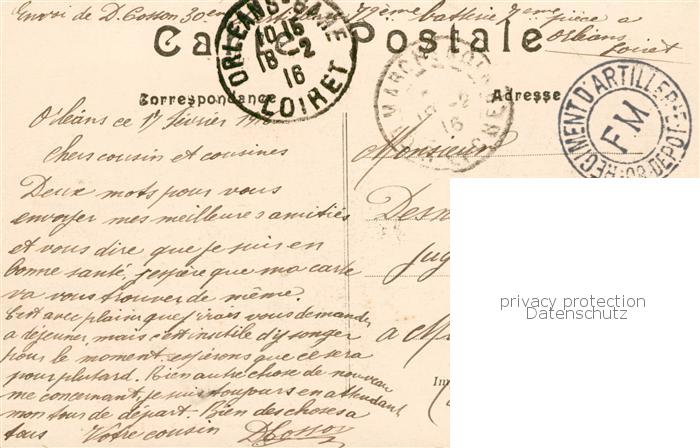 Envoi de D. Cosson 30ème 79ème batterie 7ème pièce à
Orléans
Loiret
Carte Postale
ORLEANS-GARE
10 15
18 -2
16
LOIRET
16
REGIMENT D'ARTILLERIE
FM
DEPOT
Correspondance
Adresse
Orléans ce 17 février 1916
Chers cousin et cousines
Monsieur
Deux mots pour vous
envoyer mes meilleures amitiés
et vous dire que je suis en
bonne santé, j'espère que ma carte
va vous trouver de même.
C'est avec plaisir que j'irais vous demander
à déjeuner, mais c'est inutile d'y songer
pour le moment. espérons que ce sera
pour plutard. Bien autre chose de nouveau
me concernant, je suis toujours en attendant
mon tour de départ. Bien des choses à
tous Votre cousin DCosson
Desn
Jug
à M
Im
privacy protection
Datenschutz